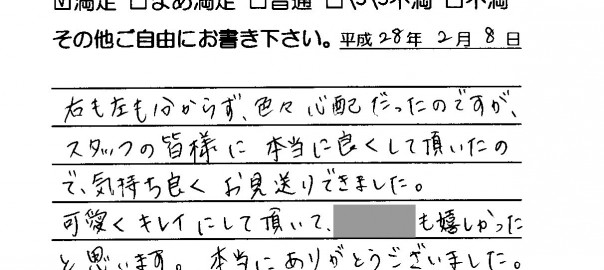 ☑満足 □まあ満足 □普通 □やや不満 □不満
その他ご自由にお書き下さい。平成28年 2月 8日
右も左も分からず、色々心配だったのですが、
スタッフの皆様に 本当に良くして頂いたの
で、気持ち良く お見送りできました。
可愛くキレイにして頂いて、 も嬉しかった
と思います。本当にありがとうございました。